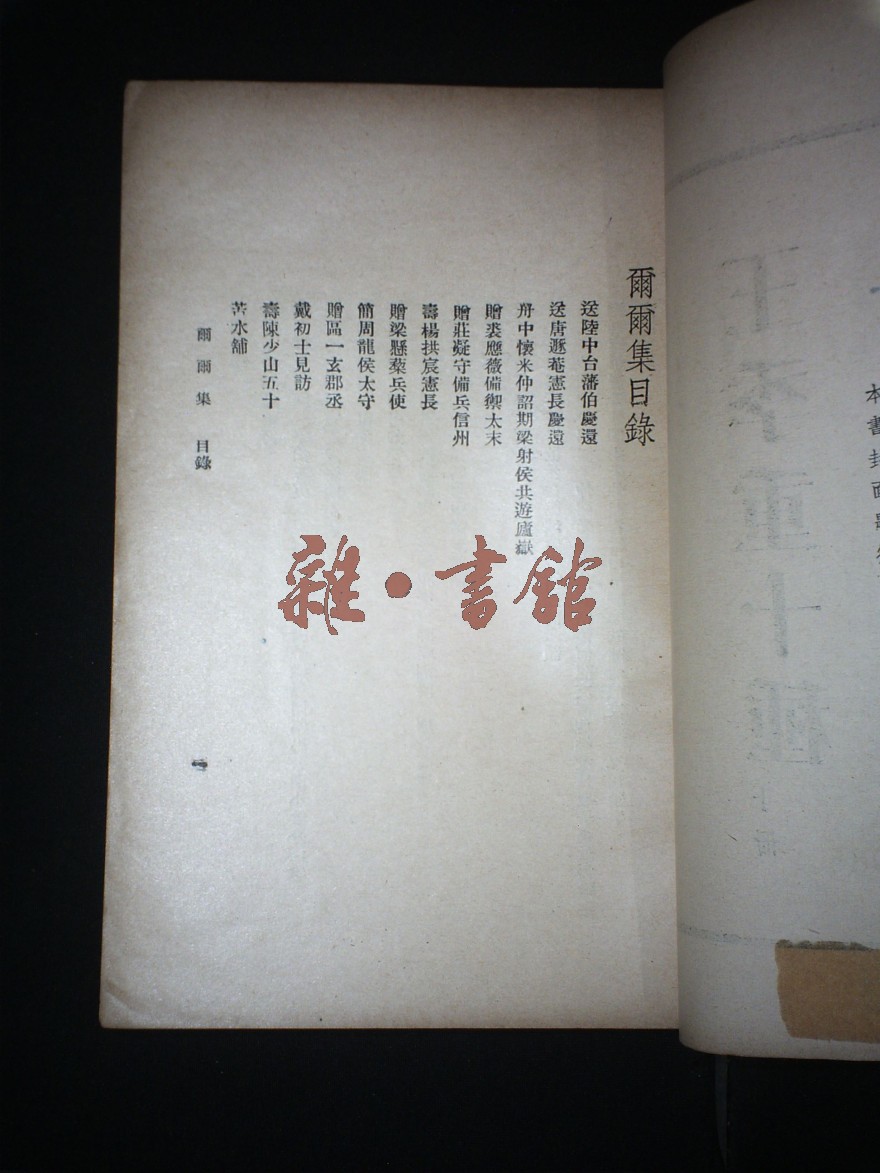 爾爾集目錄
送陸中台藩伯慶還
送唐遯菴憲長慶還
舟中懷米仲詔期梁射侯共遊廬嶽
贈裘應薇備禦太末
贈莊凝守備兵信州
壽楊拱宸憲長
贈梁懸藜兵使
簡周龍侯太守
贈區一玄郡丞
戴初士見訪
壽陳少山五十
苦水舖
爾爾集 目錄
一
雜·書館
本書封面